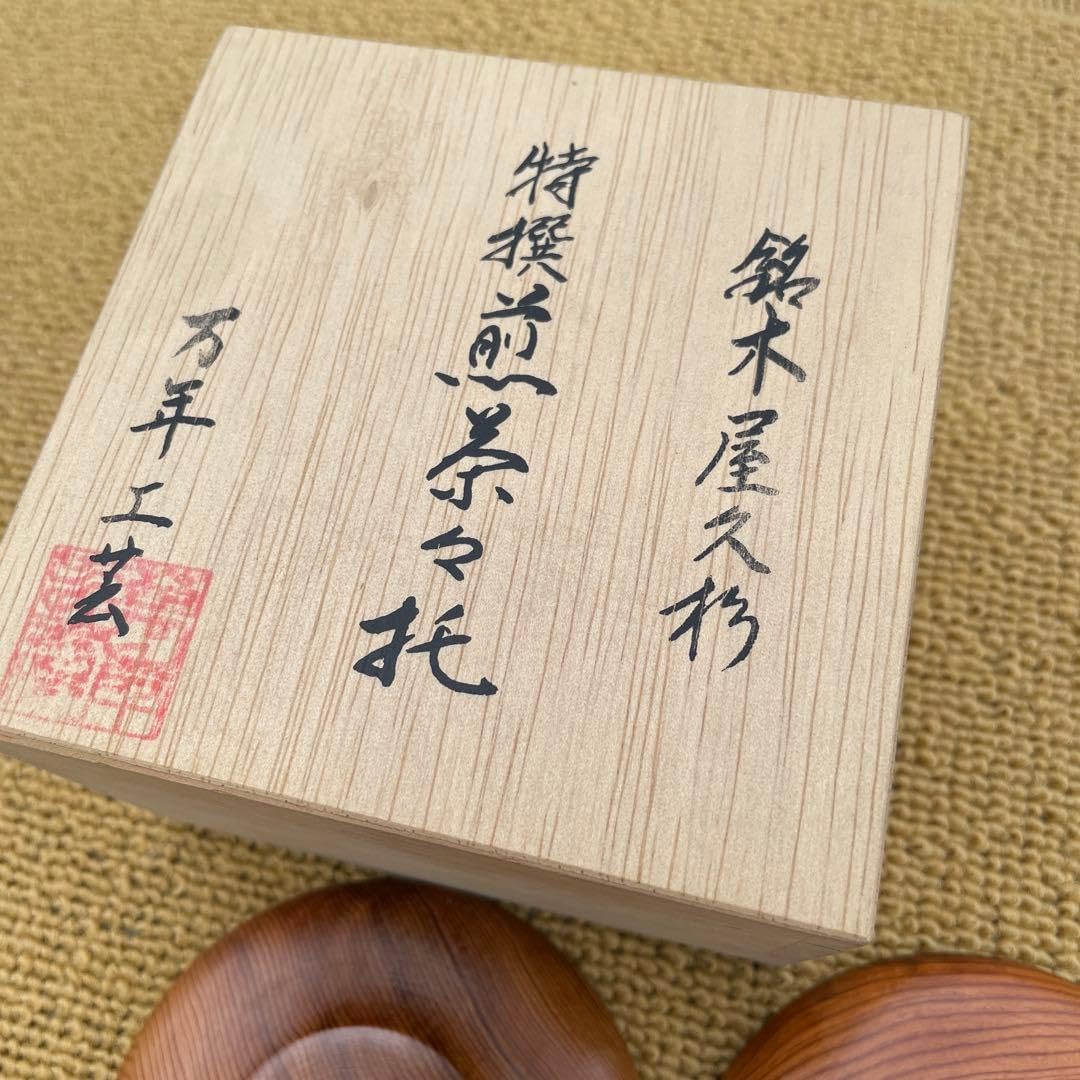 銘木屋久杉
特撰煎茶々托
万年工芸